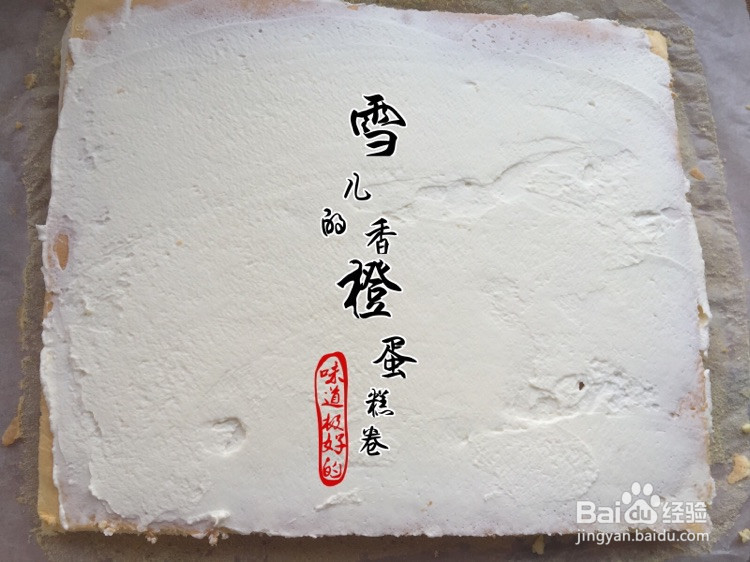 雪儿的香橙蛋糕卷
味道极好的
Baidu经验
jingyan.baidu.com